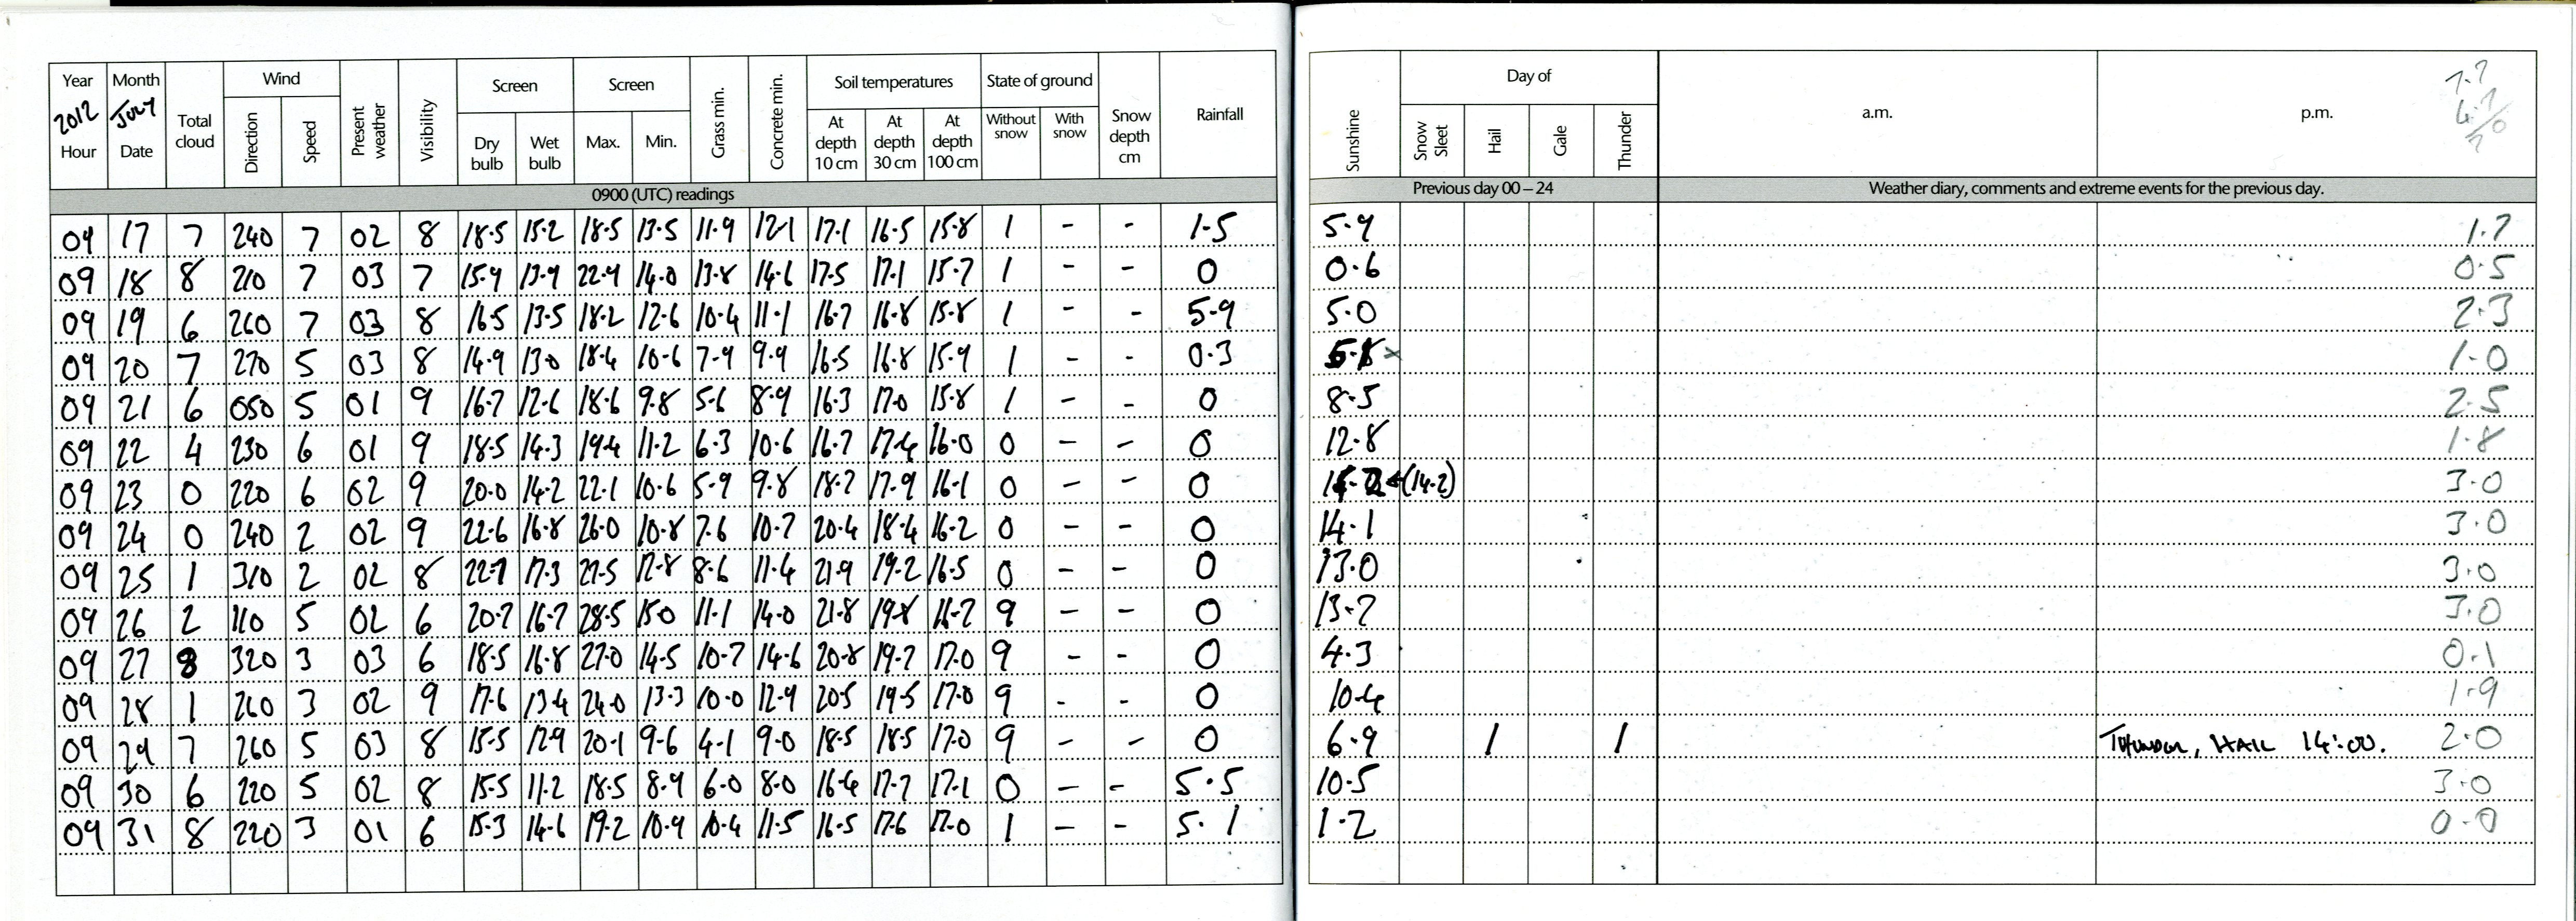 Year Month Total cloud Wind Present weather Visibility Screen Screen Grass min. Concrete min. Soil temperatures State of ground Snow depth cm Rainfall Sunshine Day of a.m. p.m.
2012 July Direction Speed Dry bulb Wet bulb Max. Min. At depth 10 cm At depth 30 cm At depth 100 cm Without snow With snow Snow Sleet Hail Gale Thunder
Hour Date
0900 (UTC) readings Previous day 00 – 24 Weather diary, comments and extreme events for the previous day.
09 17 7 240 7 02 8 18.5 15.2 18.5 13.5 11.9 12.1 17.1 16.5 15.8 1 - - 1.5 5.9 1.7
09 18 8 210 7 03 7 15.9 13.9 22.9 14.0 13.8 14.6 17.5 17.1 15.7 1 - - 0 0.6 0.5
09 19 6 260 7 03 8 16.5 13.5 18.2 12.6 10.4 11.1 16.7 16.8 15.8 1 - - 5.9 5.0 2.3
09 20 7 270 5 03 8 14.9 13.0 18.4 10.6 7.9 9.9 16.5 16.8 15.9 1 - - 0.3 1.0
09 21 6 050 5 01 9 16.7 12.6 18.6 9.8 5.6 8.9 16.3 17.0 15.8 1 - - 0 8.5 2.5
09 22 4 230 6 01 9 18.5 14.3 19.4 11.2 6.3 10.6 16.7 17.4 16.0 0 - - 0 12.8 1.8
09 23 0 220 6 02 9 20.0 14.2 22.1 10.6 5.9 9.8 18.7 17.9 16.1 0 - - 0 (14.2) 3.0
09 24 0 240 2 02 9 22.6 16.8 26.0 10.8 7.6 10.7 20.4 18.4 16.2 0 - - 0 14.1 3.0
09 25 1 310 2 02 8 22.7 17.3 27.5 12.8 8.6 11.4 21.9 19.2 16.5 0 - - 0 13.0 3.0
09 26 2 110 5 02 6 20.7 16.7 28.5 15.0 11.1 14.0 21.8 19.8 16.7 9 - - 0 13.7 3.0
09 27 8 320 3 03 6 18.5 16.8 27.0 14.5 10.7 14.6 20.8 19.7 17.0 9 - - 0 4.3 0.1
09 28 1 260 3 02 9 17.6 13.4 24.0 13.3 10.0 12.9 20.5 19.5 17.0 9 - - 0 10.4 1.9
09 29 7 260 5 03 8 15.5 12.9 20.1 9.6 4.1 9.0 18.5 18.5 17.0 9 - - 0 6.9 1 1 Thunder, Hail 14:00. 2.0
09 30 6 220 5 02 8 15.5 11.2 18.5 8.9 6.0 8.0 16.4 17.7 17.1 0 - - 5.5 10.5 3.0
09 31 8 220 3 01 6 15.3 14.6 19.2 10.9 10.4 11.5 16.5 17.6 17.0 1 - - 5.1 1.2 0.0